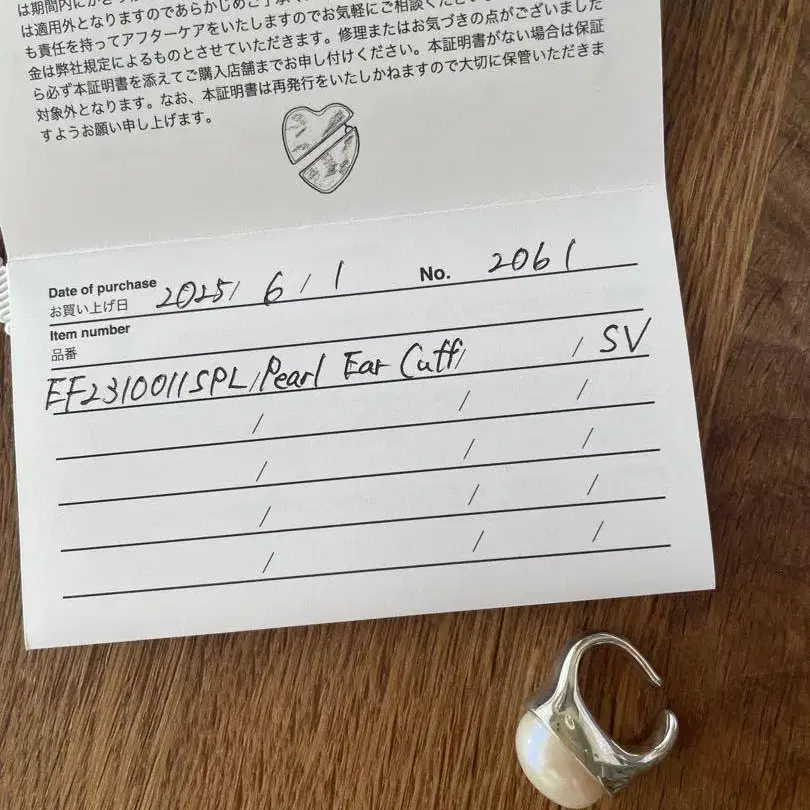 は適用外となりますのであらかじめご了承く
も責任を持ってアフターケアをいたしますのでお気軽にご相談ください
金は弊社規定によるものとさせていただきます。修理またはお気づきの点がございました
ら必ず本証明書を添えてご購入店舗までお申し付けください。本証明書がない場合は保証
対象外となります。なお、本証明書は再発行をいたしかねますので大切に保管いただきま
すようお願い申し上げます。
Date of purchase 2025/ 6 / 1 No. 2061
お買い上げ日
Item number
品番
EF2310011SPL/Pearl Ear Cuff/ / SV
/ / /
/ / /
/ / /
/ / /